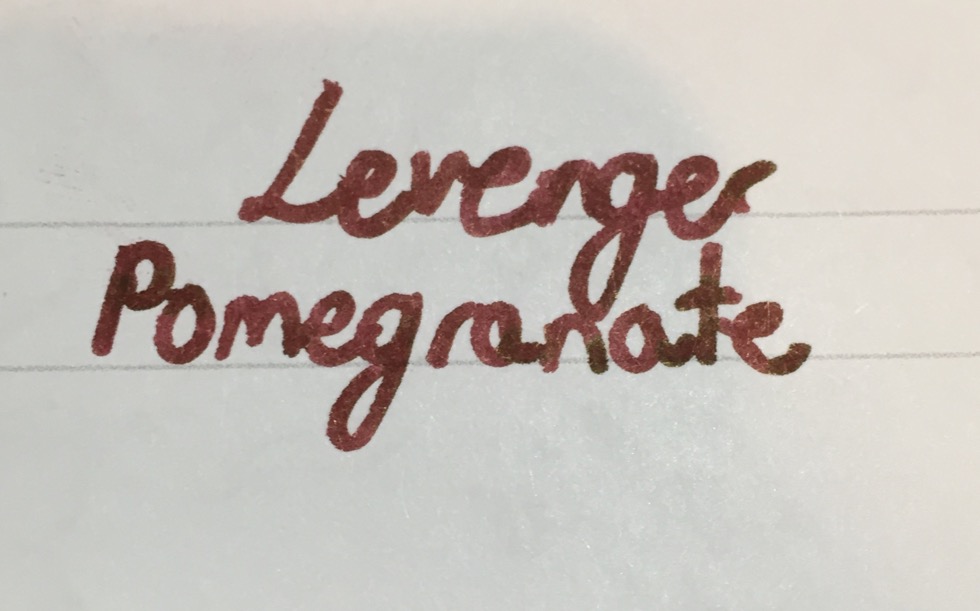 Levenger
Pomegranate